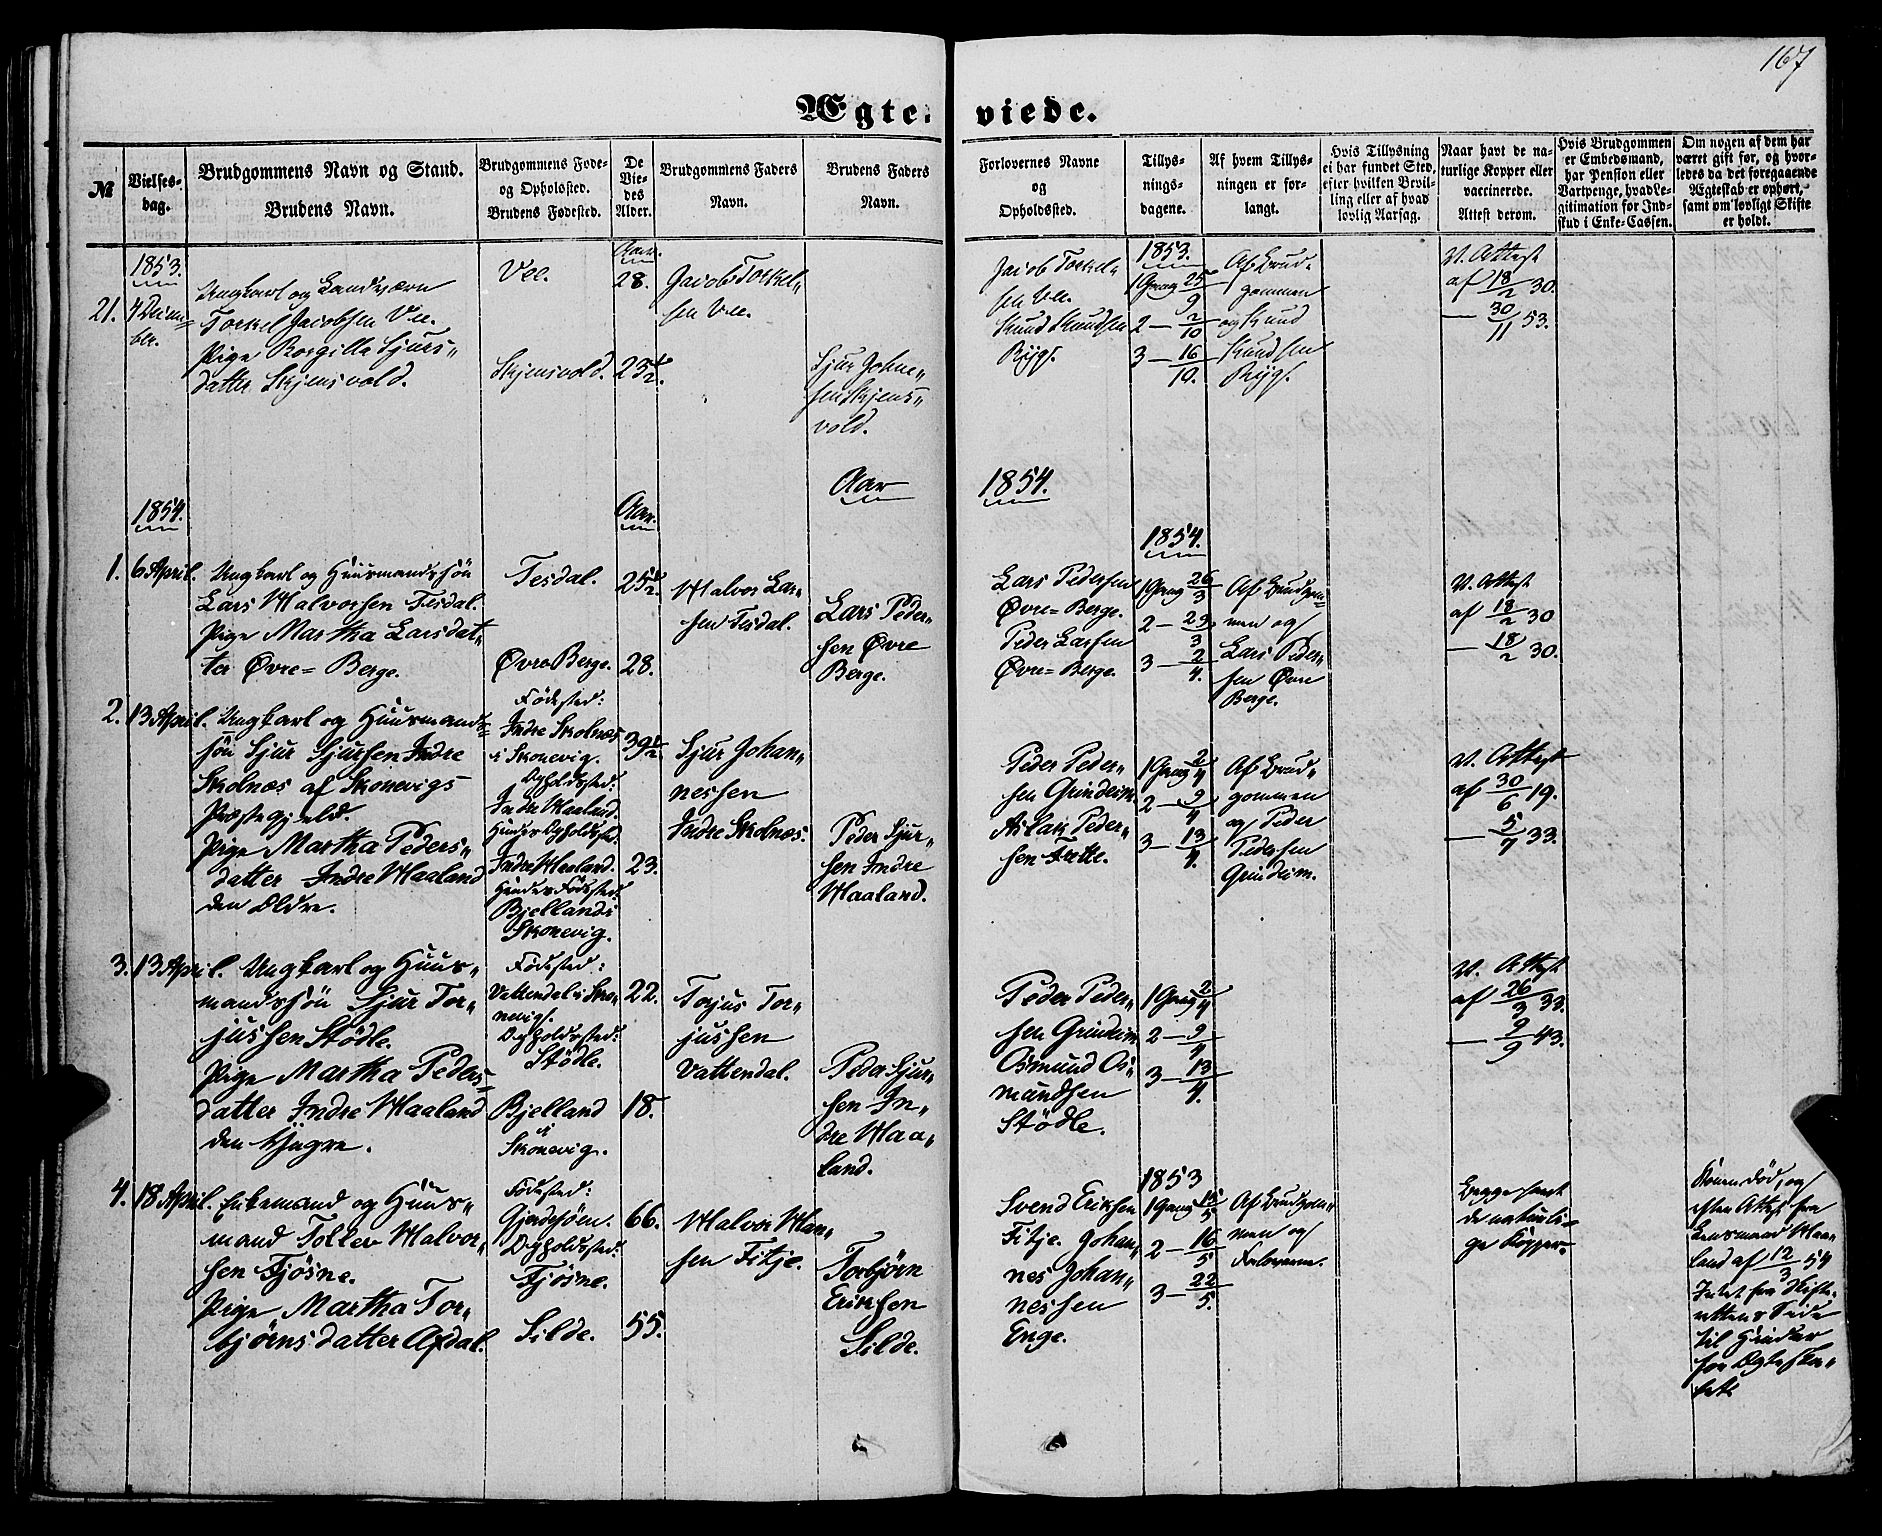 167
Ægte-viede.
No
Vielses-
dag.
Brudgommens Navn og Stand.
Brudens Navn.
Brudgommens Føde-
og Opholdsted.
Brudens Fødested.
De
Vie-
des
Alder.
Brudgommens Faders
Navn.
Brudens Faders
Navn.
Forlovernes Navne
og
Opholdssted.
Tillys-
nings-
dagene.
Af hvem Tillys-
ningen er for-
langt.
Hvis Tillysning
ei har fundet Sted,
efter hvilken Bevil-
ling eller af hvad
lovlig Aarsag.
Naar havt de na-
turlige Kopper eller
vaccinerede.
Attest derom.
Hvis Brudgommen
er Embedsmand,
har Pension eller
Vartpenge, hvad Le-
gitimation for Ind-
skud i Enke-Cassen.
Om nogen af dem har
været gift før, og hvor-
ledes da det foregaaende
Ægteskab er ophørt,
samt om lovligt Skifte
er holdt.
1853.
21.
4 Decem-
ber.
Ungkarl og Landværn
Torkel Jacobsen Vee.
Pige Borgilla Sjurs-
datter Skjensvold.
Vee.
Skjensvold.
Aar.
28.
23½.
Jacob Torkel-
sen Vee.
Sjur Johne-
sen Skjens-
vold.
Jacob Torkel-
sen Vee.
Knud Knudsen
Rygs.
1853.
1 Gang 25/9
2 — 2/10
3 — 16/10.
Af Brud-
gommen
og Knud
Knudsen
Rygs.
V. Attest
af 18/2 30.
— 30/11 53.
Aar 1854.
1854.
Aar.
1854.
1.
6 April.
Ungkarl og Huusmandssøn
Lars Halvorsen Tesdal.
Pige Martha Larsdat-
ter Øvre-Berge.
Tesdal.
Øvre Berge.
25½.
28.
Halvor Lar-
sen Tesdal.
Lars Peder-
sen Øvre
Berge.
Lars Pedersen
Øvre-Berge.
Peder Larsen
Øvre-Berge.
1 Gang 26/3
2 — 29/3
3 — 2/4.
Af Brudgom-
men og
Lars Peder-
sen Øvre
Berge.
V. Attest
af 18/2 30
— 18/2 30.
2.
13 April.
Ungkarl og Huusmands-
søn Sjur Sjursen Indre
Skolnæs af Skonevigs
Præstegjeld.
Pige Martha Peders-
datter Indre Haaland
den Ældre.
Fødested:
Indre Skolnæs
i Skonevig.
Opholdssted:
Indre Haaland.
Hendes Opholdssted
Indre Haaland.
Hendes Fødested:
Bjelland i
Skonevig.
39½.
23.
Sjur Johan-
nessen
Indre Skolnæs.
Peder Sjur-
sen Indre
Haaland.
Peder Peder-
sen Grindeim
Aslak Peder-
sen Frette.
1 Gang 2/4
2 — 9/4
3 — 13/4.
Af Brud-
gommen
og Peder
Pedersen
Grindeim.
V. Attest
af 30/6 19.
— 5/7 33.
3.
13 April.
Ungkarl og Huus-
mandssøn Sjur Tor-
jussen Stödle.
Pige Martha Peders-
datter Indre Haaland
den Yngre.
Fødested:
Vattendal i Sko-
nevigs.
Opholdssted:
Stödle.
Bjelland
i
Skonevig.
22.
18.
Torjus Tor-
jussen
Vattendal.
Peder Sjur-
sen In-
dre Haa-
land.
Peder Peder-
sen Grindeim
Osmund Os-
mundsen
Stödle.
1 Gang 2/4
2 — 9/4
3 — 13/4.
V. Attest
af 26/3 33.
— 9/9 43.
4.
18 April.
Enkemand og Huus-
mand Tollev Halvor-
sen Fjøsne.
Pige Martha Tor-
bjørnsdatter Afdal.
Fødested:
Gjerdesøen.
Opholdssted:
Fjøsne.
Silde.
66.
55.
Halvor Han-
sen Fitje.
Torbjørn
Eriksen
Silde.
Svend Eriksen
Fitje. Johan-
nes Johan-
nessen
Enge.
1853
1 Gang 15/5
2 — 16/5
3 — 22/5.
Af Brudgom-
men og
Forloverne.
Begge havt
de naturli-
ge Kopper.
Konen død, og
efter Attest fra
Lensmand Haa-
land af 12/3 54
Intet fra Skifte-
rettens Side
til Hinder
for Ægteska-
bet.